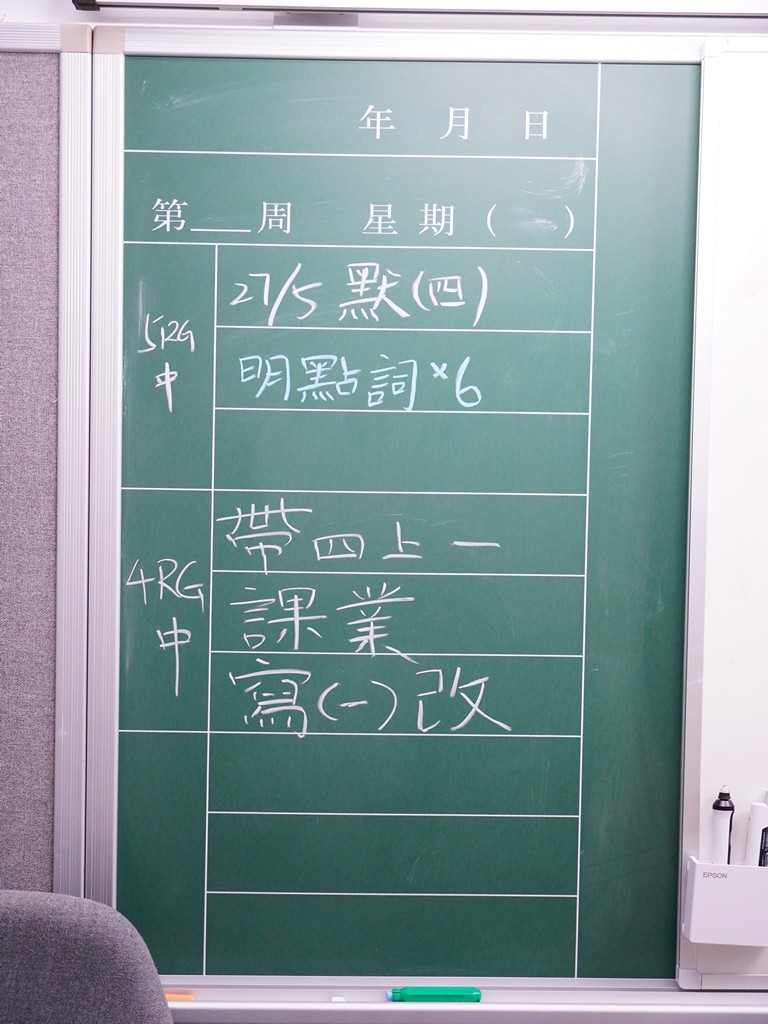 年 月 日
第___周 星期( )
5RG
中
27/5 默(四)
明點詞×6
4RG
中
帶四上一
課業
寫(一)改
EPSON